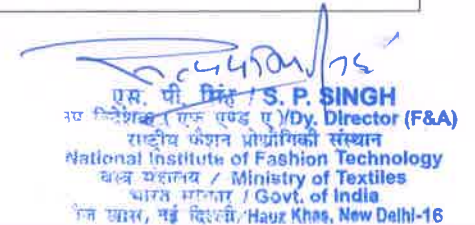 एस. पी. सिंह / S. P. SINGH
उप निदेशक (एफ एण्ड ए)/Dy. Director (F&A)
राष्ट्रीय फैशन प्रौद्योगिकी संस्थान
National Institute of Fashion Technology
वस्त्र मंत्रालय / Ministry of Textiles
भारत सरकार / Govt. of India
खास, नई दिल्ली/Hauz Khas, New Delhi-16